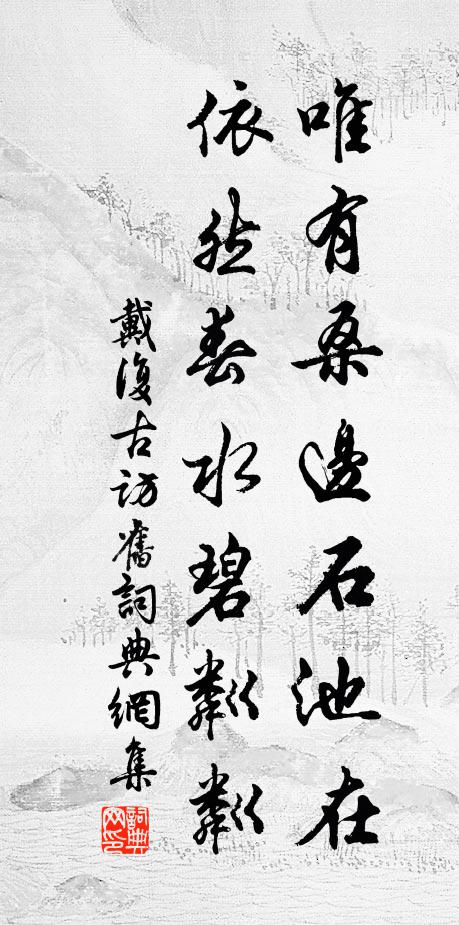 唯有桑邊石池在
依然春水碧粼粼
戴復古訪舊詞典網集
詞典网印